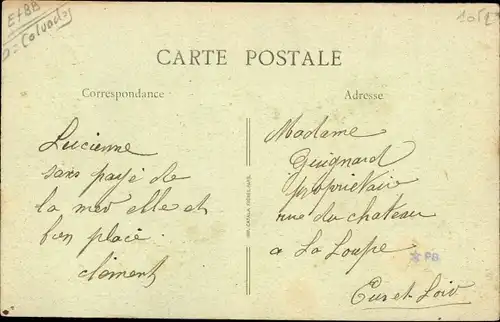 E+BB
(Calvados)
CARTE POSTALE
Correspondance
Adresse
Lucienne
sans payé de
la mer elle et
bien placé.
clement
IMP. CATALA FRÈRES, PARIS
Madame
Guignard
propriétaire
rue du chateau
a La Loupe
PB
Eur et Loir